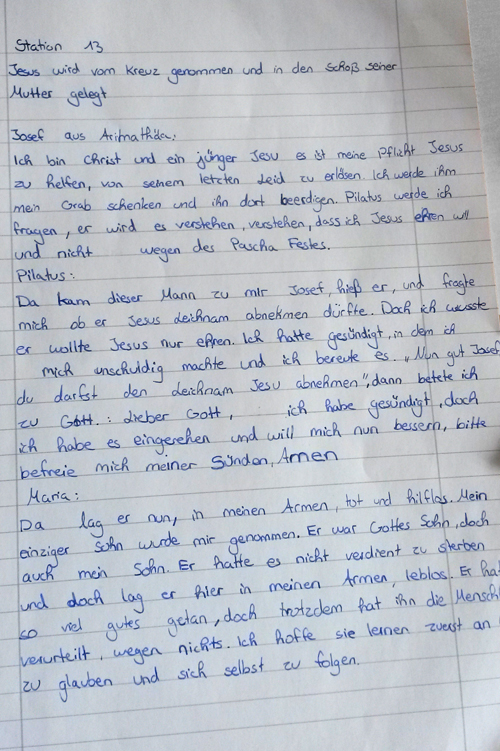 Station 13
Jesus wird vom Kreuz genommen und in den Schoß seiner
Mutter gelegt
Josef aus Arimathäa:
Ich bin Christ und ein jünger Jesu es ist meine Pflicht Jesus
zu helfen, von seinem letzten Leid zu erlösen. Ich werde ihm
mein Grab schenken und ihn dort beerdigen. Pilatus werde ich
fragen, er wird es verstehen, verstehen, dass ich Jesus ehren will
und nicht wegen des Pascha Festes.
Pilatus:
Da kam dieser Mann zu mir Josef, hieß er, und fragte
mich ob er Jesus Leichnam abnehmen dürfte. Doch ich wusste
er wollte Jesus nur ehren. Ich hatte gesündigt, in dem ich
mich unschuldig machte und ich bereute es. „Nun gut Josef
du darfst den Leichnam Jesu abnehmen", dann betete ich
zu Gott.: Lieber Gott, ich habe gesündigt, doch
ich habe es eingesehen und will mich nun bessern, bitte
befreie mich meiner Sünden, Amen
Maria:
Da lag er nun, in meinen Armen, tot und hilflos. Mein
einziger Sohn wurde mir genommen. Er war Gottes Sohn, doch
auch mein Sohn. Er hatte es nicht verdient zu sterben
und doch lag er hier in meinen Armen, leblos. Er hat
so viel gutes getan, doch trotzdem hat ihn die Mensch
verurteilt, wegen nichts. Ich hoffe sie lernen zuerst an
zu glauben und sich selbst zu folgen.